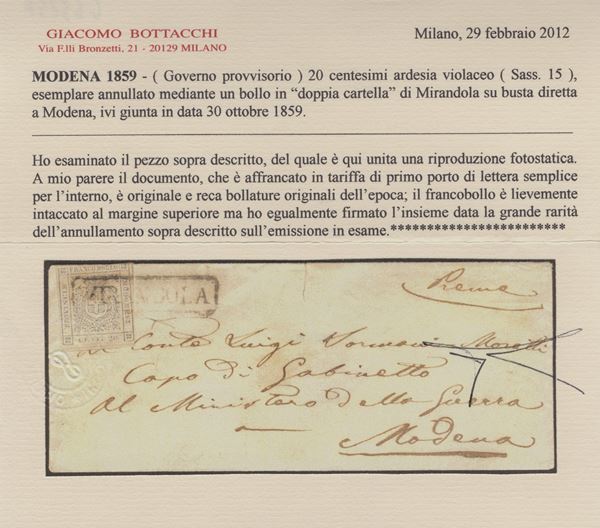 GIACOMO BOTTACCHI
Via F.lli Bronzetti, 21 - 20129 MILANO
Milano, 29 febbraio 2012
MODENA 1859 - ( Governo provvisorio ) 20 centesimi ardesia violaceo ( Sass. 15 ),
esemplare annullato mediante un bollo in “doppia cartella” di Mirandola su busta diretta
a Modena, ivi giunta in data 30 ottobre 1859.
Ho esaminato il pezzo sopra descritto, del quale è qui unita una riproduzione fotostatica.
A mio parere il documento, che è affrancato in tariffa di primo porto di lettera semplice
per l’interno, è originale e reca bollature originali dell’epoca; il francobollo è lievemente
intaccato al margine superiore ma ho egualmente firmato l’insieme data la grande rarità
dell’annullamento sopra descritto sull’emissione in esame.************************
FRANCOBOLLO
PROVINCIE
CENT. 20
Conte Luigi
Capo di Gabinetto
al Ministero della Guerra
Modena